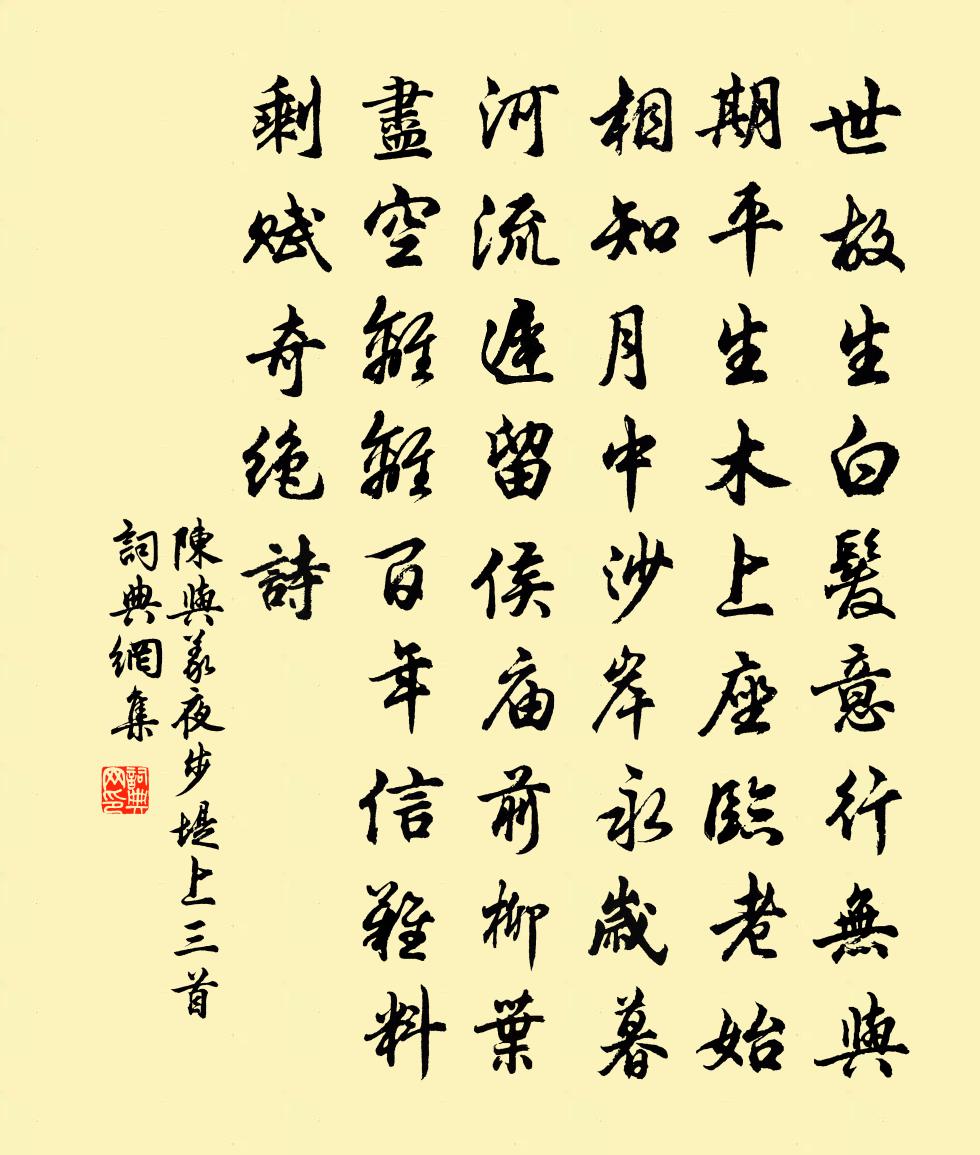 世故生白髮意行無與
期平生木上座臨老始
相知月中沙岸永歲暮
河流遲留侯庙前柳葉
盡空離離百年信難料
剩賦奇絶詩
陳與義夜步堤上三首
詞典網集
詞典
网印